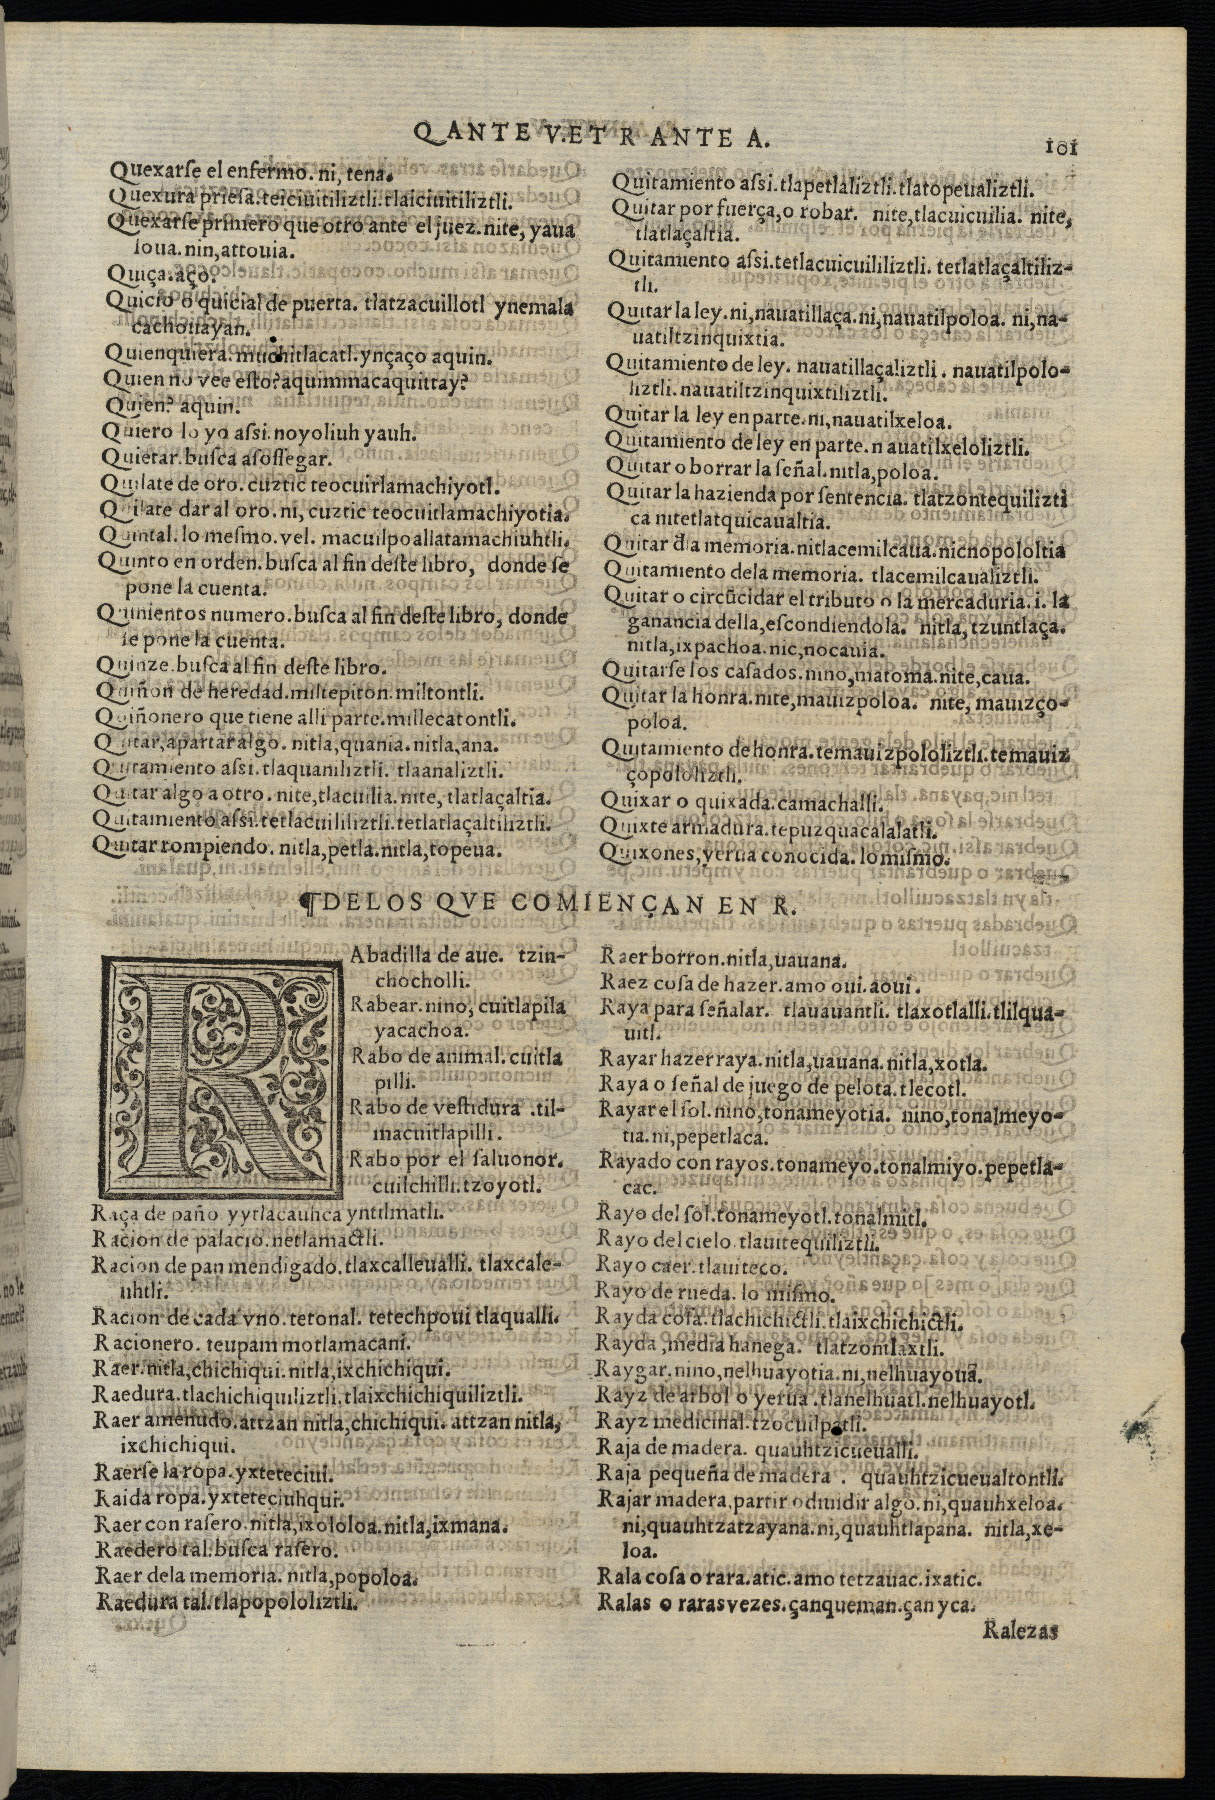 Q ANTE V. ET R ANTE A.
101
Quexarſe el enfermo. ni, tena.
Quexura prieſa. teiciuitiliztli. tlaiciuitiliztli.
Quexarſe primero que otro ante el juez. nite, yaua
ioua. nin, attouia.
Quiça. aço.
Quicio o quicial de puerta. tlatzacuillotl ynemala
cachouayan.
Quienquiera. muchitlacatl. ynçaço aquin.
Quien no vee eſto? aquimmacaquittay?
Quien? aquin.
Quiero lo yo aſsi. noyoliuh yauh.
Quietar. buſca aſoſſegar.
Quilate de oro. cuztic teocuitlamachiyotl.
Quilate dar al oro. ni, cuztic teocuitlamachiyotia.
Quintal. lo meſmo. vel. macuilpoallatamachiuhtli.
Quinto en orden. buſca al fin deſte libro, donde ſe
pone la cuenta.
Quinientos numero. buſca al fin deſte libro, donde
ſe pone la cuenta.
Quinze. buſca al fin deſte libro.
Quiñon de heredad. miltepiton. miltontli.
Quiñonero que tiene alli parte. millecatontli.
Quitar, apartar algo. nitla, quania. nitla, ana.
Quitamiento aſsi. tlaquaniliztli. tlaanaliztli.
Quitar algo a otro. nite, tlacuilia. nite, tlatlaçaltia.
Quitamiento aſsi. tetlacuililiztli. tetlatlaçaltiliztli.
Quitar rompiendo. nitla, petla. nitla, topeua.
Quitamiento aſsi. tlapetlaliztli. tlatopeualiztli.
Quitar por fuerça, o robar. nite, tlacuicuilia. nite,
tlatlaçaltia.
Quitamiento aſsi. tetlacuicuililiztli. tetlatlaçaltiliz-
tli.
Quitar la ley. ni, nauatillaça. ni, nauatilpoloa. ni, na-
uatiltzinquixtia.
Quitamiento de ley. nauatillaçaliztli. nauatilpolo-
liztli. nauatiltzinquixtiliztli.
Quitar la ley en parte. ni, nauatilxeloa.
Quitamiento de ley en parte. nauatilxeloliztli.
Quitar o borrar la ſeñal. nitla, poloa.
Quitar la hazienda por ſentencia. tlatzontequilizti
ca nitetlatquicaualtia.
Quitar d̃la memoria. nitlacemilcaua. nicnopololtia
Quitamiento dela memoria. tlacemilcaualiztli.
Quitar o circũcidar el tributo o la mercaduria. i. la
ganancia della, eſcondiendola. nitla, tzuntlaça.
nitla, ixpachoa. nic, nocauia.
Quitarſe los caſados. nino, matoma. nite, caua.
Quitar la honra. nite, mauizpoloa. nite, mauizço-
poloa.
Quitamiento de honra. temauizpololiztli. temauiz
çopololiztli.
Quixar o quixada. camachalli.
Quixte armadura. tepuzquacalalatli.
Quixones, yerua conocida. lo miſmo.
¶DELOS QVE COMIENÇAN EN R.
RAbadilla de aue. tzin-
chocholli.
Rabear. nino, cuitlapila
yacachoa.
Rabo de animal. cuitla
pilli.
Rabo de veſtidura. til-
macuitlapilli.
Rabo por el ſaluonor.
cuilchilli. tzoyotl.
Raça de paño yytlacauhca yntilmatli.
Racion de palacio. netlamactli.
Racion de pan mendigado. tlaxcalleualli. tlaxcale-
uhtli.
Racion de cada vno. tetonal. tetechpoui tlaqualli.
Racionero. teupam motlamacani.
Raer. nitla, chichiqui. nitla, ixchichiqui.
Raedura. tlachichiquiliztli. tlaixchichiquiliztli.
Raer amenudo. attzan nitla, chichiqui. attzan nitla,
ixchichiqui.
Raerſe la ropa. yxteteciui.
Raida ropa. yxteteciuhqui.
Raer con raſero. nitla, ixololoa. nitla, ixmana.
Raedero tal. buſca raſero.
Raer dela memoria. nitla, popoloa.
Raedura tal. tlapopololiztli.
Raer borron. nitla, uauana.
Raez coſa de hazer. amo oui. aoui.
Raya para ſeñalar. tlauauantli. tlaxotlalli. tlilqua-
uitl.
Rayar hazer raya. nitla, uauana. nitla, xotla.
Raya o ſeñal de juego de pelota. tlecotl.
Rayar el ſol. nino, tonameyotia. nino, tonalmeyo-
tia. ni, pepetlaca.
Rayado con rayos. tonameyo. tonalmiyo. pepetla-
cac.
Rayo del ſol. tonameyotl. tonalmitl.
Rayo del cielo. tlauitequiliztli.
Rayo caer. tlauiteco.
Rayo de rueda. lo miſmo.
Rayda coſa. tlachichictli. tlaixchichictli.
Rayda, media hanega. tlatzontlaxtli.
Raygar. nino, nelhuayotia. ni, nelhuayotia.
Rayz de arbol o yerua. tlanelhuatl. nelhuayotl.
Rayz medicinal. tzocuilpatli.
Raja de madera. quauhtzicueualli.
Raja pequeña de madera. quauhtzicueualtontli.
Rajar madera, partir o diuidir algo. ni, quauhxeloa.
ni, quauhtzatzayana. ni, quauhtlapana. nitla, xe-
loa.
Rala coſa o rara. atic. amo tetzauac. ixatic.
Ralas o raras vezes. çanqueman. çan yca.
Ralezas